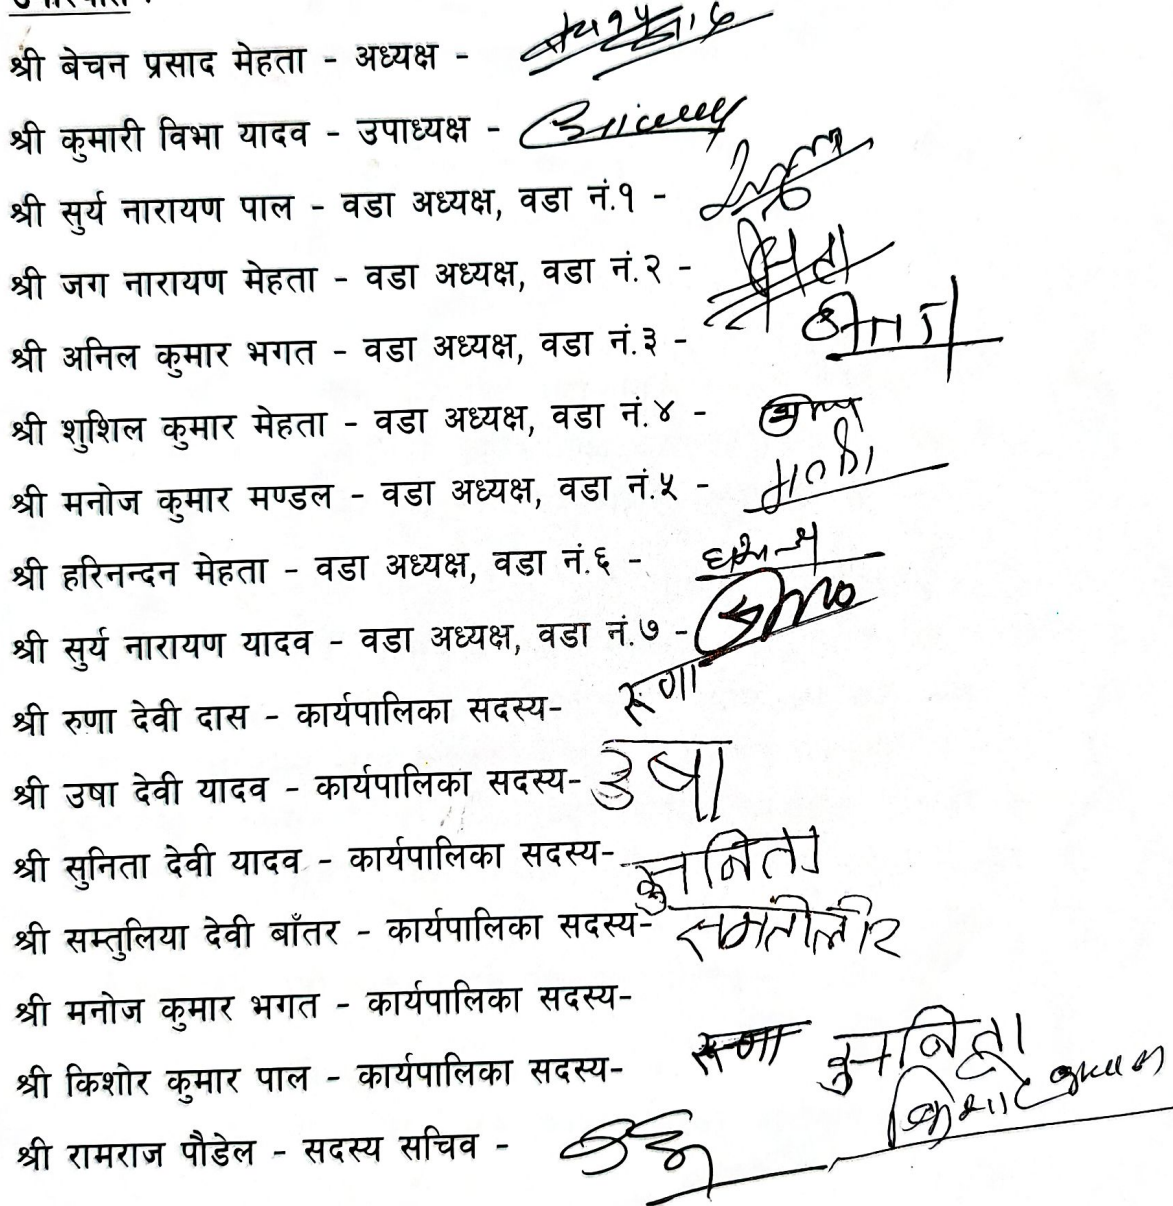 श्री बेचन प्रसाद मेहता - अध्यक्ष -
श्री कुमारी विभा यादव - उपाध्यक्ष -
श्री सुर्य नारायण पाल - वडा अध्यक्ष, वडा नं.१ -
श्री जग नारायण मेहता - वडा अध्यक्ष, वडा नं.२ -
श्री अनिल कुमार भगत - वडा अध्यक्ष, वडा नं.३ -
श्री शुशिल कुमार मेहता - वडा अध्यक्ष, वडा नं.४ -
श्री मनोज कुमार मण्डल - वडा अध्यक्ष, वडा नं.५ -
श्री हरिनन्दन मेहता - वडा अध्यक्ष, वडा नं.६ -
श्री सुर्य नारायण यादव - वडा अध्यक्ष, वडा नं.७ -
श्री रुणा देवी दास - कार्यपालिका सदस्य- रूणा
श्री उषा देवी यादव - कार्यपालिका सदस्य- उषा
श्री सुनिता देवी यादव - कार्यपालिका सदस्य-
श्री सम्तुलिया देवी बाँतर - कार्यपालिका सदस्य-
श्री मनोज कुमार भगत - कार्यपालिका सदस्य-
श्री किशोर कुमार पाल - कार्यपालिका सदस्य-
श्री रामराज पौडेल - सदस्य सचिव -